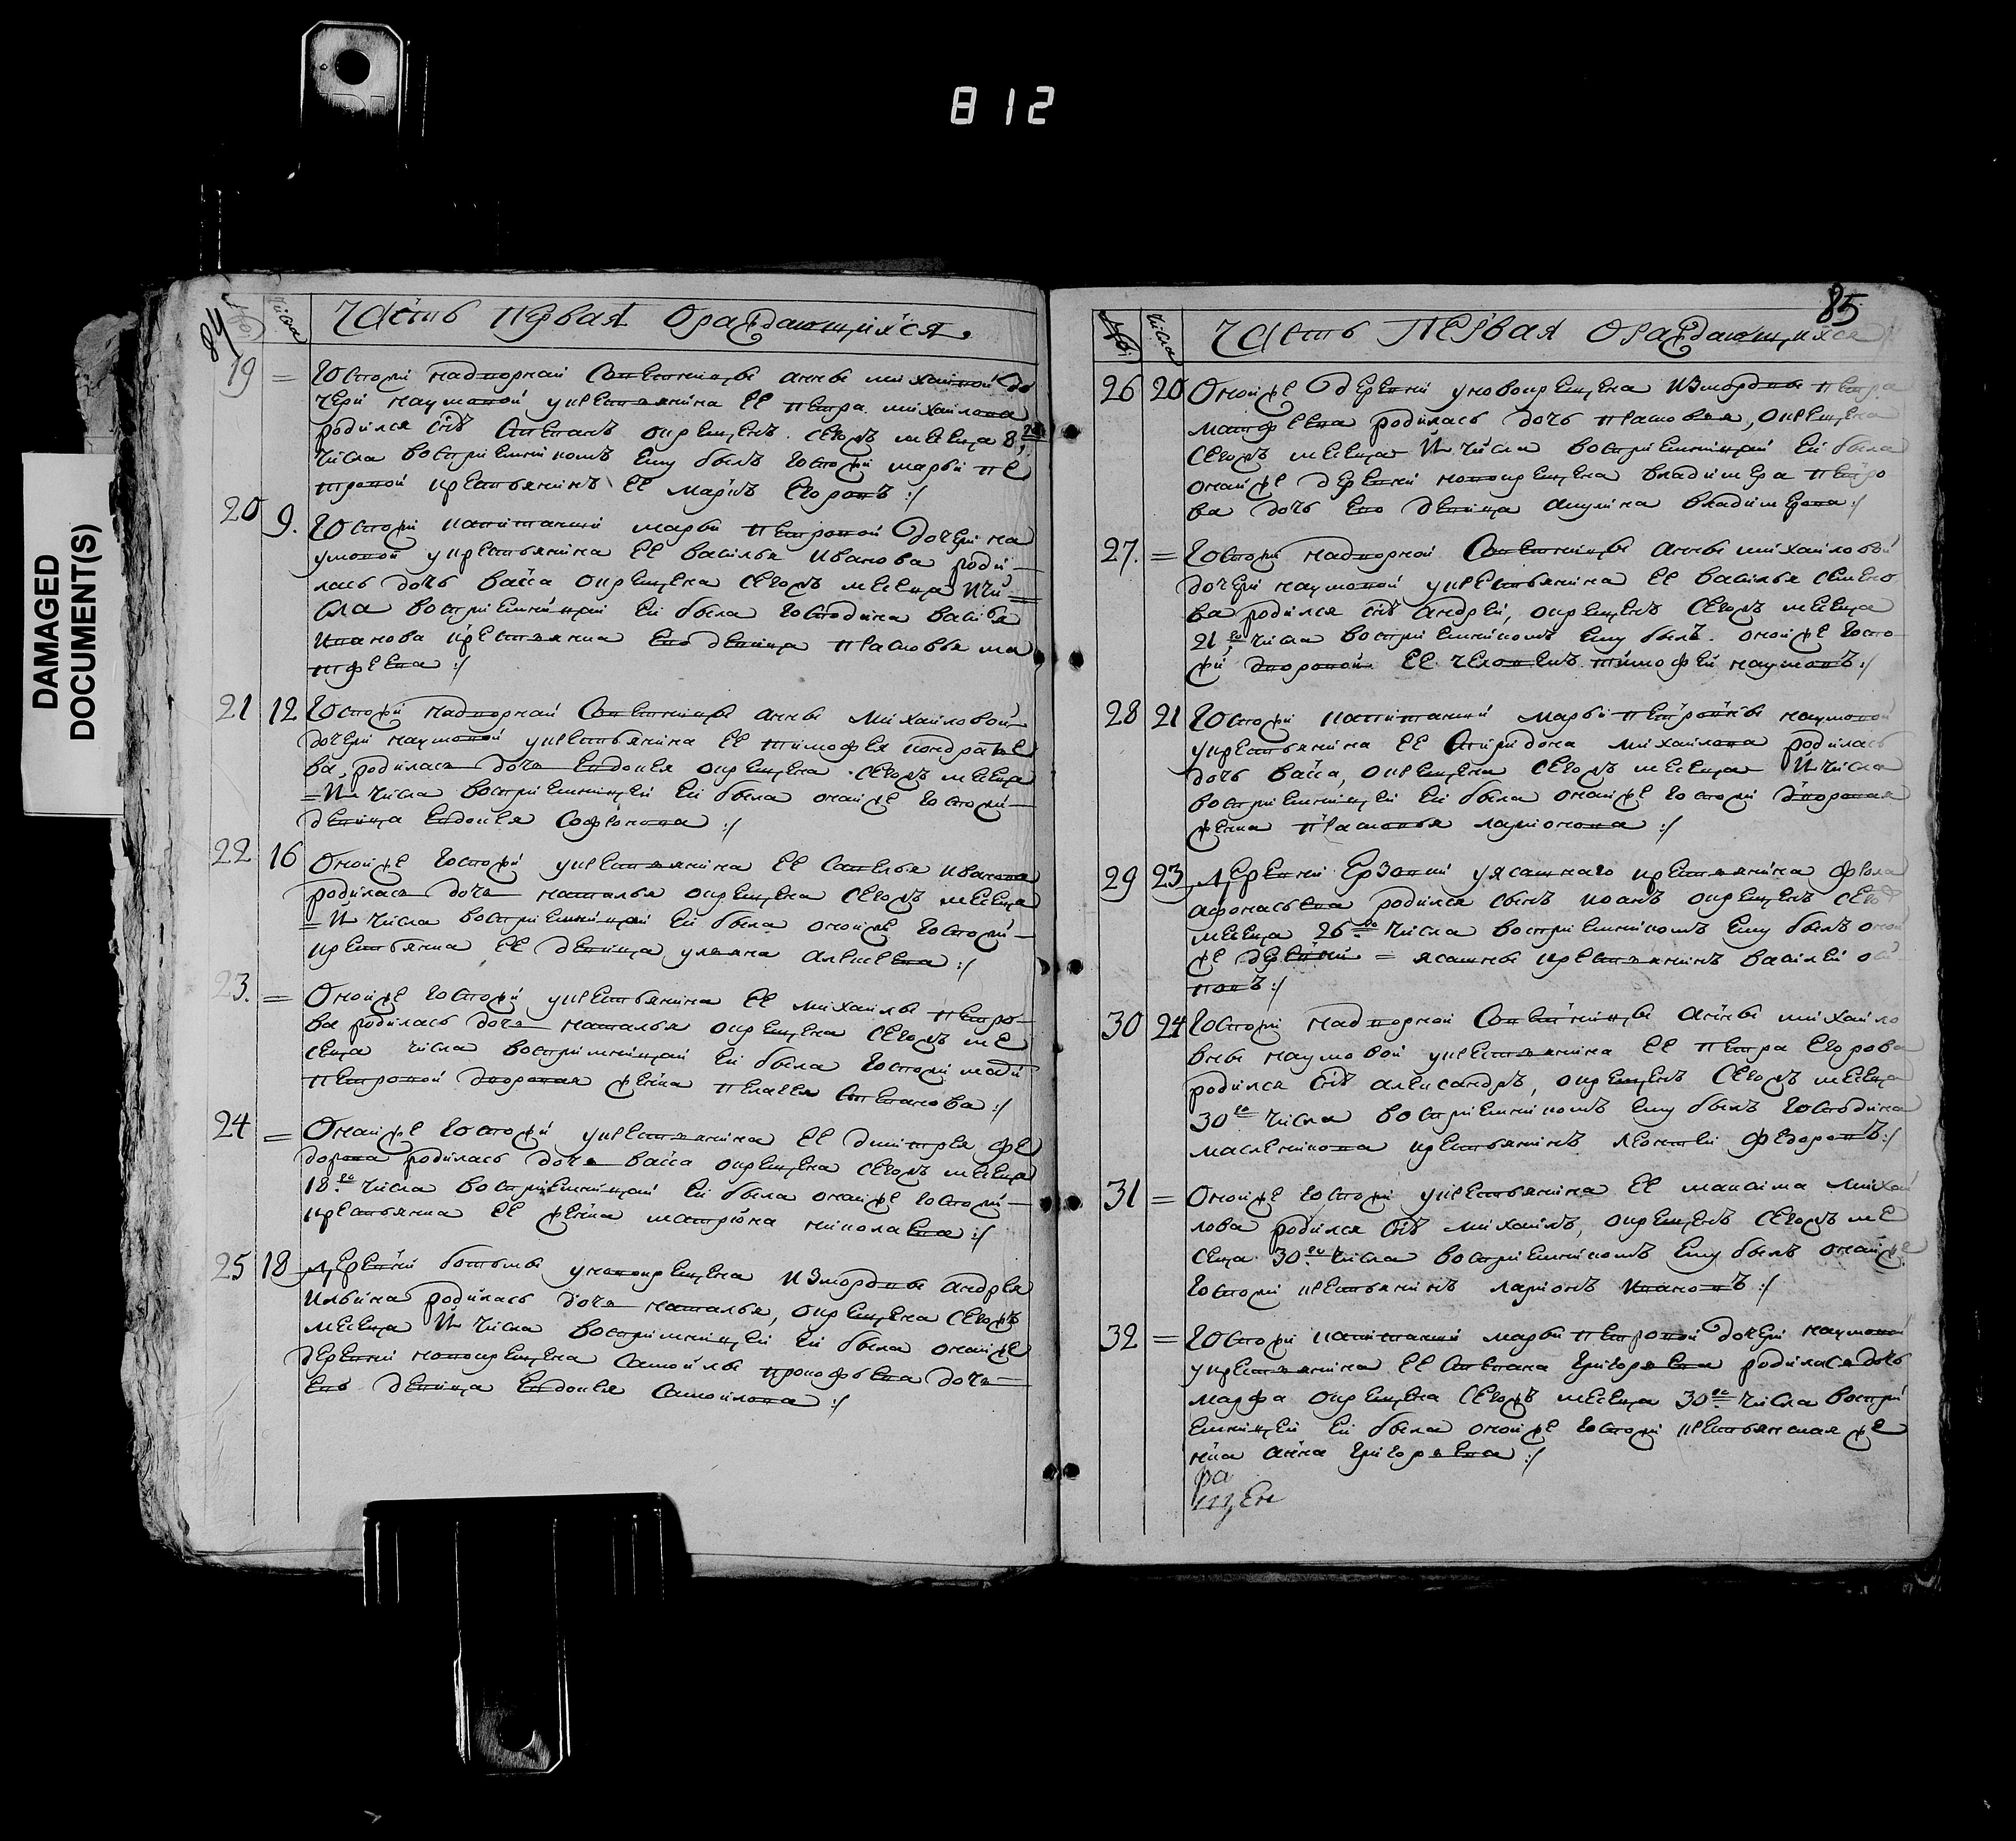 812
DAMAGED
DOCUMENT(S)
84
числа
Часть первая ораждающихся
19 = Госпожи надворнай Советницы анны михайлной до
чери наумовой укрестьянина ее петра михайлова
родился снъ Степанъ окрещенъ сегожъ месеца 8,го
числа восприемникомъ ему былъ госпожи марьи пе
тровой крестьянинъ ее маркъ егоровъ :/
20 9. Госпожи капитанши марьи петровой дочери на
умовой укрестьянина ее василья иванова роди-
лась дочь васса окрещена сегожъ месеца и чи=
сла восприемницай ей была господина василья
иванова крестьянка ево девица прасковья ма
тфеева :/
21 12 Госпожи надворнай Советницы анны михайловой
дочери наумовой укрестьянина ее тимофея кондратье
ва, родилась дочь евдокея окрещена сегожъ месеца
= и числа восприемницей ей была онайже госпожи
девица евдокея софронова :/
22 16 Онойже госпожи укрестьянина ее савелья иванова
родилась дочь наталья окрещена сегожъ месеца
= и числа восприемницай ей была онойже госпожи
крестьянка ее девица ульяна алексеева :/
23. = Онойже госпожи укрестьянина ее михайлы петро-
ва родилась дочь наталья окрещена сегожъ ме
сеца числа восприимницай ей была госпожи марьи
петровой дворовая женка пелагея степанова :/
24 = Онайже госпожи укрестьянина ее дмитрея фе
дорова родилась дочь васса окрещена сегожъ месеца
18.го числа восприемницай ей была онайже госпожи
крестьянка ее женка матрюна николаева :/
25 18 Деревни ботьмы уновокрещена измордвы андрея
ильина родилась дочь наталья, окрещена сегожъ
месеца и числа восприимницей ей была онайже
деревни новокрещена самойлы прокофьева дочь
ево девица евдокея самойлова :/
85
числа
Часть первая ораждающихся
26 20 Онойже деревни уновокрещена измордвы петра
матфеева родилась дочь прасковья, окрещена
сегожъ месеца и числа восприемницай ей была
онайже деревни новокрещена владимера петро
ва дочь ево девица акулина владимерова :/
27. = Госпожи надворной Советницы анны михайловой
дочери наумовой укрестьянина ее василья семено
ва родился снъ андрей, окрещенъ сегожъ месеца
21,го числа восприемникомъ ему былъ онойже госпо
жи дворовой ее человекъ тимофей наумовъ :/
28 21 Госпожи капитанши марьи петровны наумовой
укрестьянина ее спиридона михайлова родилась
дочь васса, окрещена сегожъ месеца и числа
восприемницей ей была онайже госпожи дворовая
женка прасковья ларионова :/
29 23 Деревни ерзовки уясашнаго крестьянина фрола
афонасьева родился сынъ иоанъ окрещенъ сегожъ
месеца 26го числа восприемникомъ ему былъ оной
же деревни = ясашны крестьянинъ василей
30 24 Госпожи надворной Советницы анны михайло
вны наумовой укрестьянина ее петра егорова
родился снъ александръ, окрещенъ сегожъ месеца
30го числа восприемникомъ ему былъ господина
масленикова крестьянинъ леонтей федоровъ :/
31 = Онойже госпожи укрестьянина ее максима михай
лова родился снъ михаилъ, окрещенъ сегожъ ме
сеца 30го числа восприемникомъ ему былъ онайже
госпожи крестьянинъ ларионъ ивановъ :/
32 = Госпожи капитанши марьи петровой дочери наумовой
укрестьянина ее степана григорьева родилась дочь
марфа окрещена сегожъ месеца 30го числа воспри
емницей ей была онойже госпожи крестьянская же
нка анна григорьева :/
ра
щен